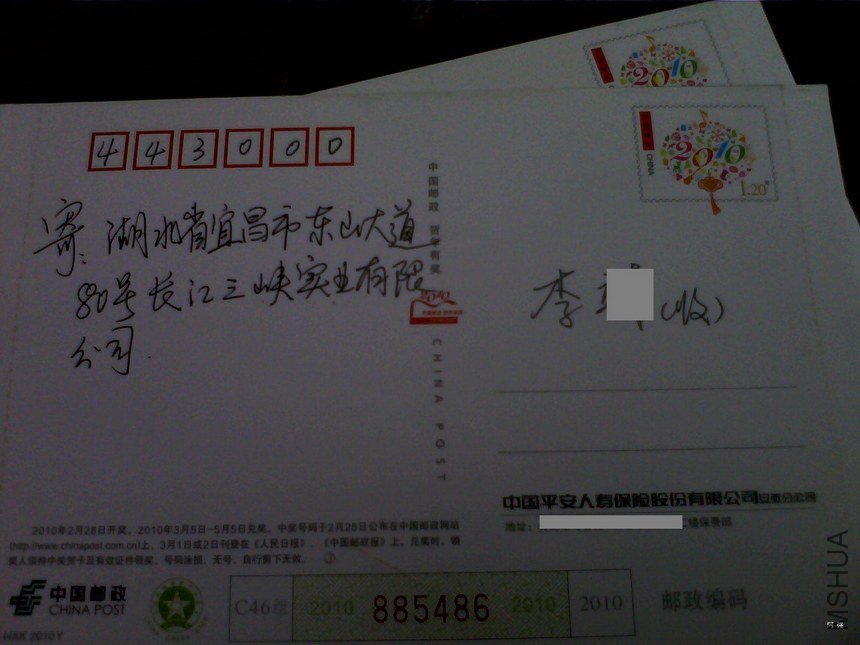 2010
CHINA
2010
1.20元
443000
中国邮政 贺年有奖
寄:湖北省宜昌市东山大道
80号长江三峡实业有限
公司
2010
CHINA POST
李 (收)
中国平安人寿保险股份有限公司安徽分公司
地址: 二楼保费部
2010年2月28日开奖,2010年3月5日-5月5日兑奖。中奖号码于2月28日公布在中国邮政网站
(http://www.chinapost.com.cn)上,3月1日或2日刊登在《人民日报》、《中国邮政报》上。兑奖时,领
奖人须持中奖贺卡及有效证件领奖,号码涂损、无号、自行剪下无效。
中国邮政
CHINA POST
HXK 2010Y
C46组 2010 885486 2010 2010
邮政编码
MSHUA